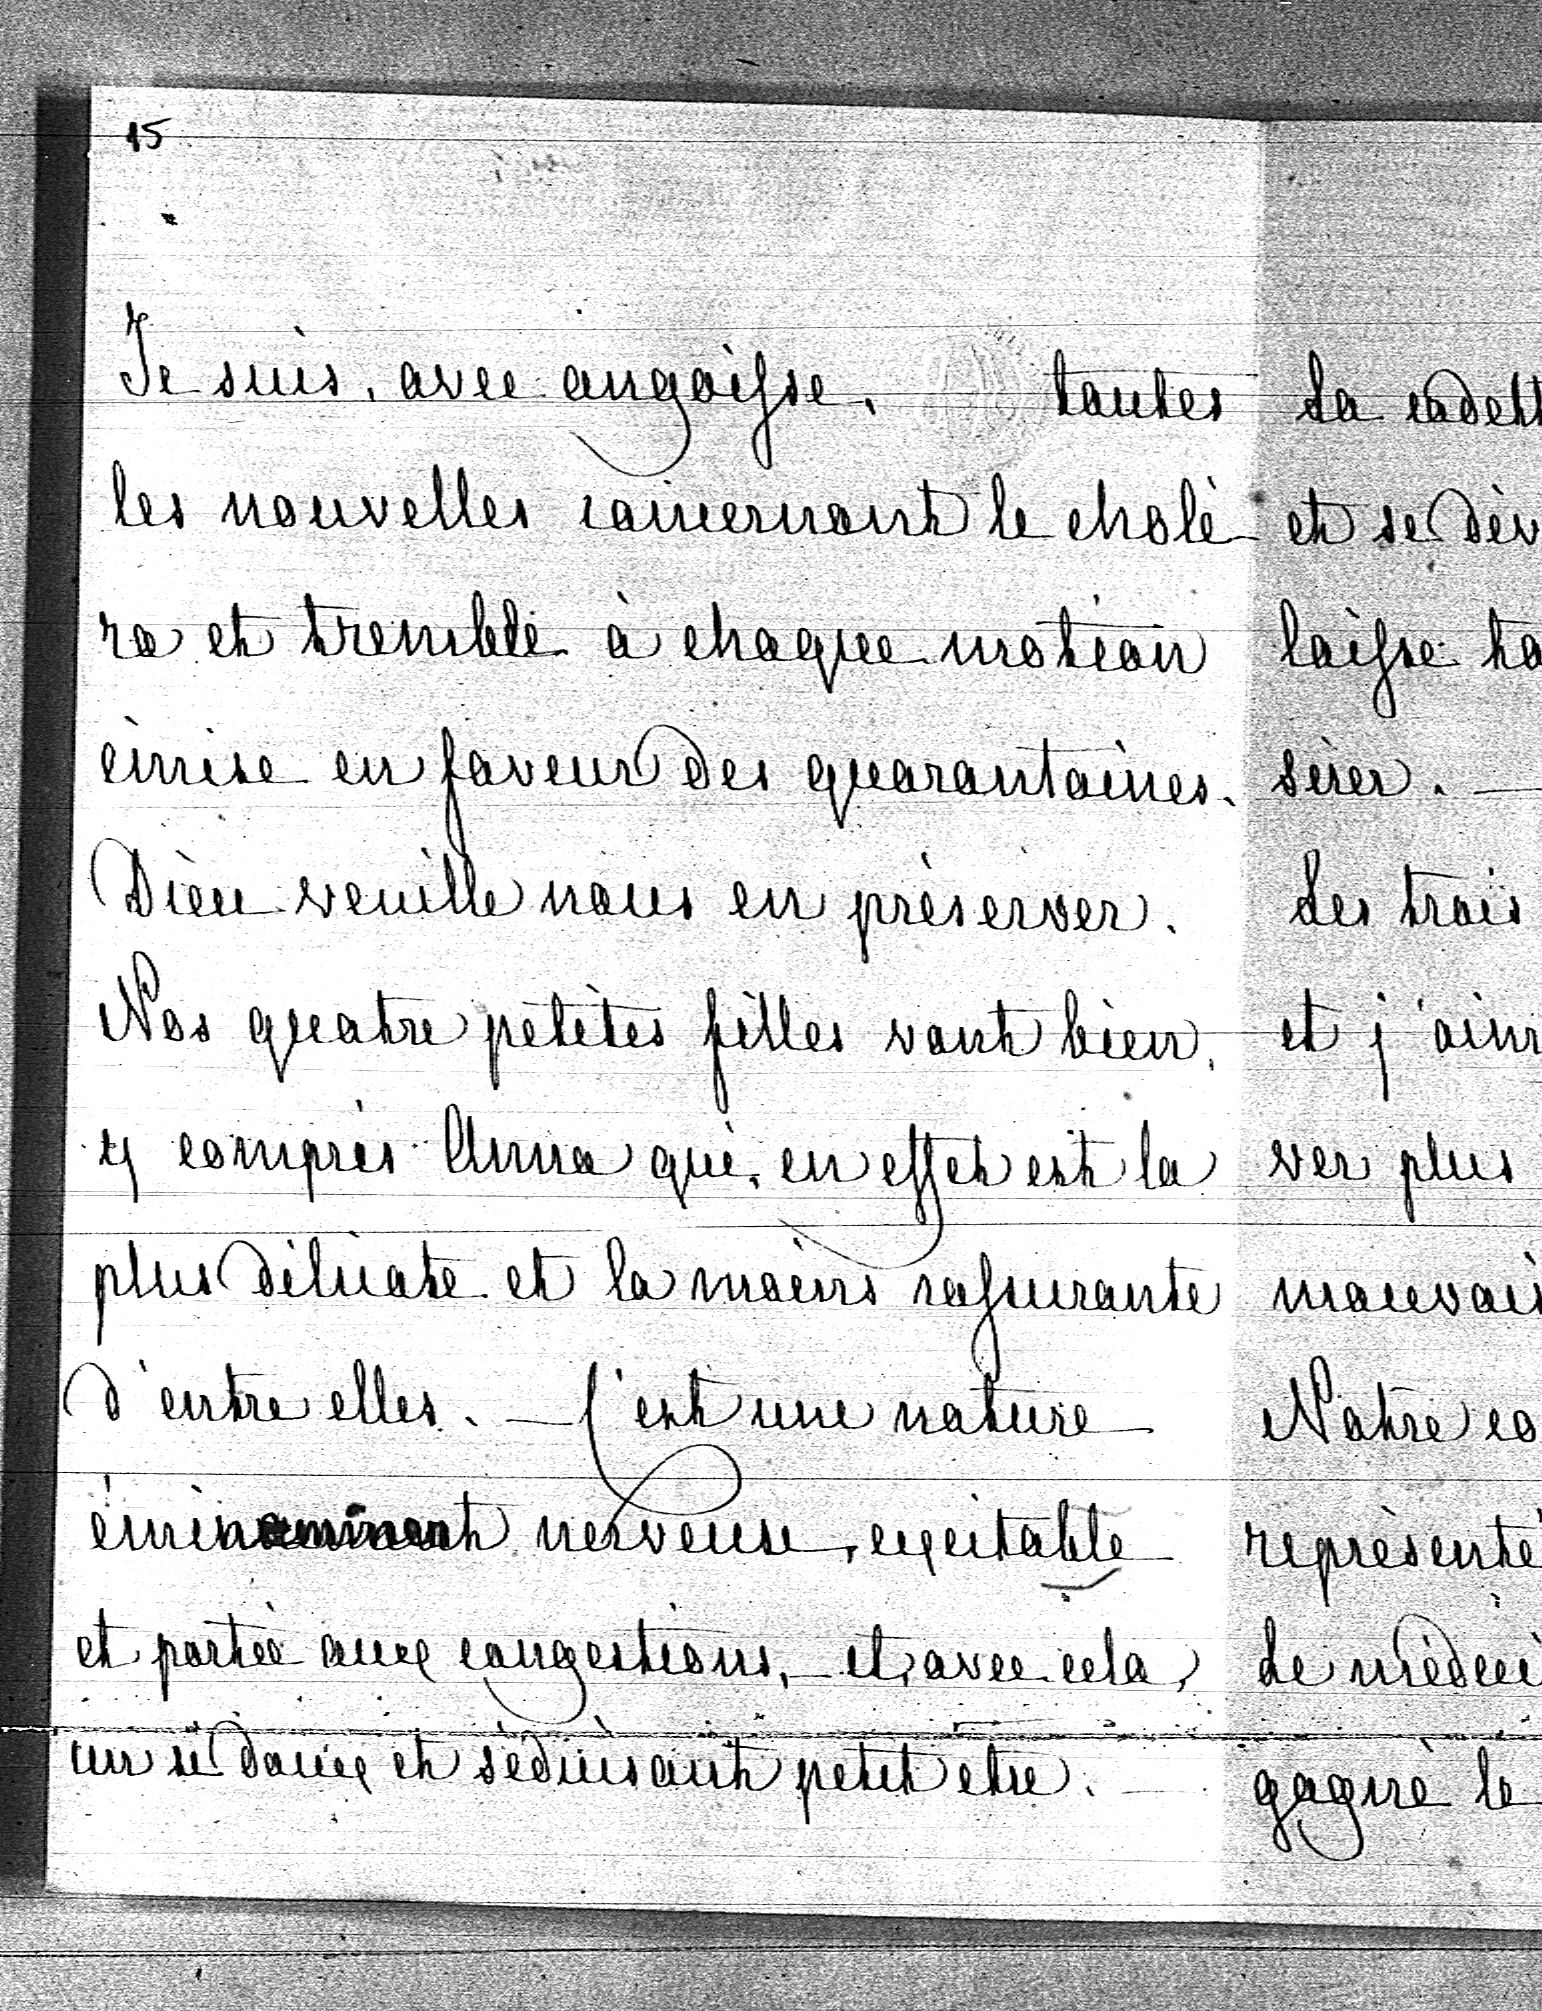 15
Je suis, avec angoisse, toutes
les nouvelles concernant le cholé-
ra et tremble à chaque motion
émise en faveur des quarantaines.
Dieu veuille nous en préserver.
Nos quatre petites filles vont bien,
y compris Anna qui, en effet est la
plus délicate et la moins rassurante
d'entre elles. — C'est une nature
nerveuse, excitable
et portée aux congestions, — et, avec cela,
un si doux et séduisant petit etre. —
La cadett
et se dév
laisse ta
sirer. —
Les trois
et j'aim
ver plus
mauvais
Notre co
représenté
de médeci
gagné le